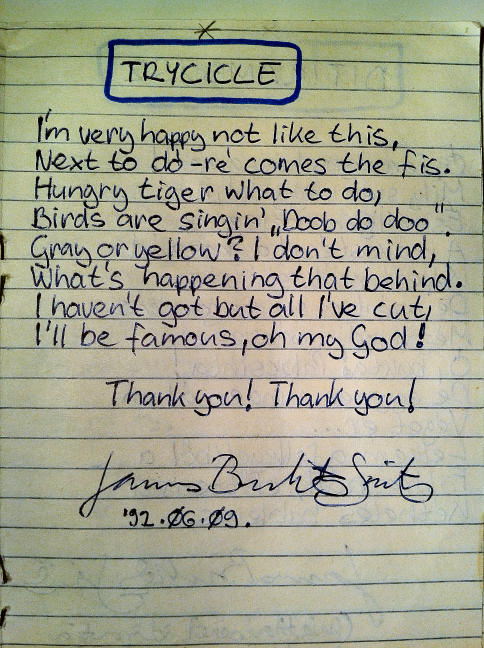 TRYCICLE
I'm very happy not like this,
Next to dó-ré comes the fis.
Hungry tiger what to do,
Birds are singin' „Doob do doo".
Gray or yellow? I don't mind,
What's happening that behind.
I haven't got but all I've cut,
I'll be famous, oh my God!
Thank you! Thank you!
'92.06.09.